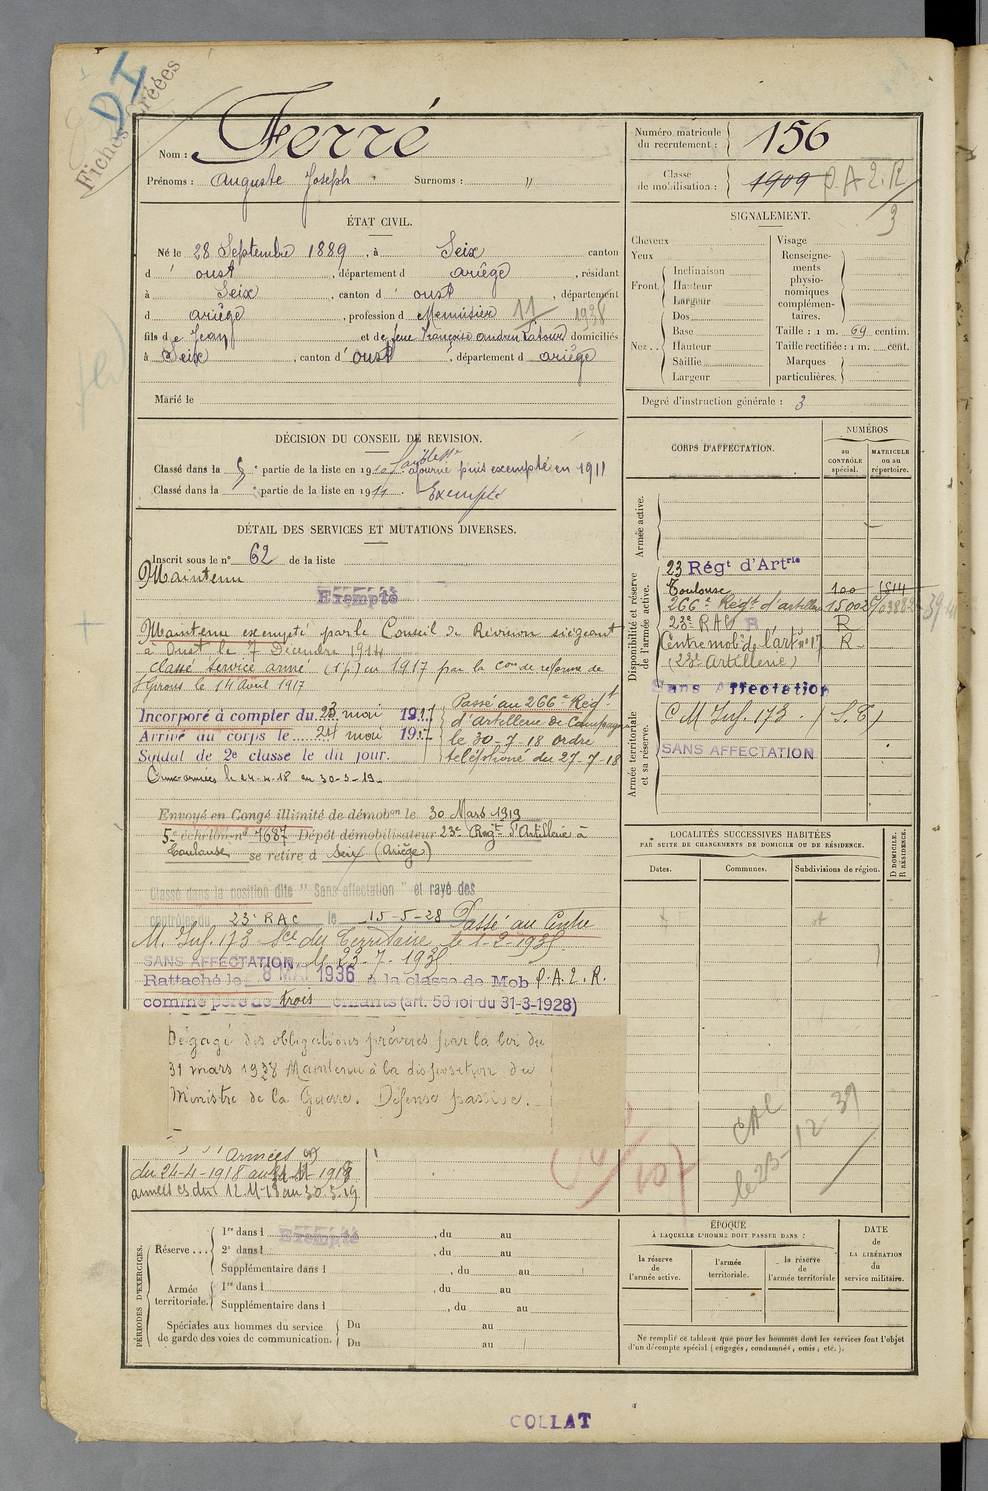 DI
Fiches Créées
Nom : Ferré
Prénoms : Auguste Joseph Surnoms : "
Numéro matricule du recrutement : 156
Classe de mobilisation : 1909 P.A.2.R
3
ÉTAT CIVIL.
Né le 28 Septembre 1889, à Seix canton
d' oust, département d ariège, résidant
à Seix, canton d' oust, département
d ariège, profession d Menuisier 11 1938
fils de Jean et de feue Françoise andrieu Latour domiciliés
à Seix, canton d' oust, département d ariège
Marié le
SIGNALEMENT.
Cheveux
Yeux
Front. Inclinaison
Hauteur
Largeur
Nez. Dos
Base
Hauteur
Saillie
Largeur
Visage
Renseignements physionomiques complémentaires.
Taille : 1 m. 69 centim.
Taille rectifiée : 1 m. cent.
Marques particulières.
Degré d'instruction générale : 3
DÉCISION DU CONSEIL DE REVISION.
Classé dans la 5e partie de la liste en 1910 faiblesse ajourné puis exempté en 1911
Classé dans la 5e partie de la liste en 1911. Exempté
DÉTAIL DES SERVICES ET MUTATIONS DIVERSES.
Inscrit sous le n° 62 de la liste
Maintenu
Exempté
Maintenu exempté par le Conseil de Révision siégeant
à Oust le 7 Décembre 1914
Classé service armé (1 p) en 1917 par la Con de réforme de
St Girons le 14 Avril 1917
Incorporé à compter du 23 mai 1917
Arrivé au corps le 24 mai 1917
Soldat de 2e classe le dit jour.
Passé au 266e Régt
d'artillerie de Campagne
le 30-7-18 ordre
téléphoné du 27-7-18
Aux armées le 24-4-18 au 30-3-19
Envoyé en Congé illimité de démobon le 30 Mars 1919
5e échelon n° 1687 Dépôt démobilisateur 23e Régt d'Artillerie à
Toulouse se retire à Seix (Ariège)
Classé dans la position dite "Sans affectation" et rayé des
contrôles du 23e RAC le 15-5-28 Passé au Centre
M. Inf. 173 Sce du Territoire le 1-2-1935
SANS AFFECTATION, le 23-7-1935
Rattaché le 8 MAI 1936 à la classe de Mob P.A.2.R.
comme père de trois enfants (art. 58 loi du 31-3-1928)
Dégagé des obligations prévues par la loi du
31 mars 1928 Maintenu à la disposition du
Ministre de la Guerre. Défense passive.
armées
du 24-4-1918 au 11-11-1918
armées es du 12-11-18 au 30.3.19
CORPS D'AFFECTATION.
NUMÉROS
au CONTRÔLE spécial.
MATRICULE ou au répertoire.
Armée active.
Disponibilité et réserve de l'armée active.
23 Régt d'Artrie
Toulouse 100 1514
266e Régt d'artillerie 15002
23e RAC R R
Centre mobe de l'artie n° 17 R
(23e Artillerie)
Sans Affectation
Armée territoriale et sa réserve.
C M Inf. 173. (S.T)
SANS AFFECTATION
LOCALITÉS SUCCESSIVES HABITÉES
PAR SUITE DE CHANGEMENTS DE DOMICILE OU DE RÉSIDENCE.
Dates.
Communes.
Subdivisions de région.
D DOMICILE. R RÉSIDENCE.
le 23-12-39
PÉRIODES D'EXERCICES.
Réserve... 1re dans l Exempté, du au
2e dans l, du au
Supplémentaire dans l, du au
Armée territoriale. 1re dans l, du au
Supplémentaire dans l, du au
Spéciales aux hommes du service Du au
de garde des voies de communication. Du au
ÉPOQUE
À LAQUELLE L'HOMME DOIT PASSER DANS :
la réserve de l'armée active.
l'armée territoriale.
la réserve de l'armée territoriale
DATE de LA LIBÉRATION du service militaire.
Ne remplir ce tableau que pour les hommes dont les services font l'objet
d'un décompte spécial (engagés, condamnés, omis, etc.).
COLLAT